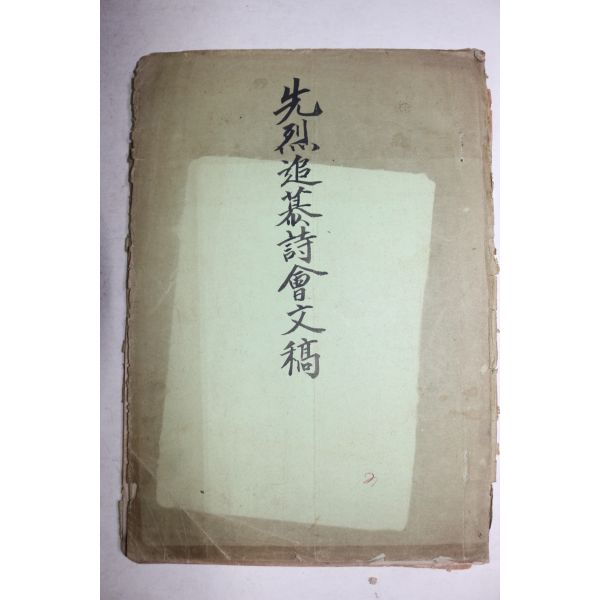 先烈追慕詩會文稿